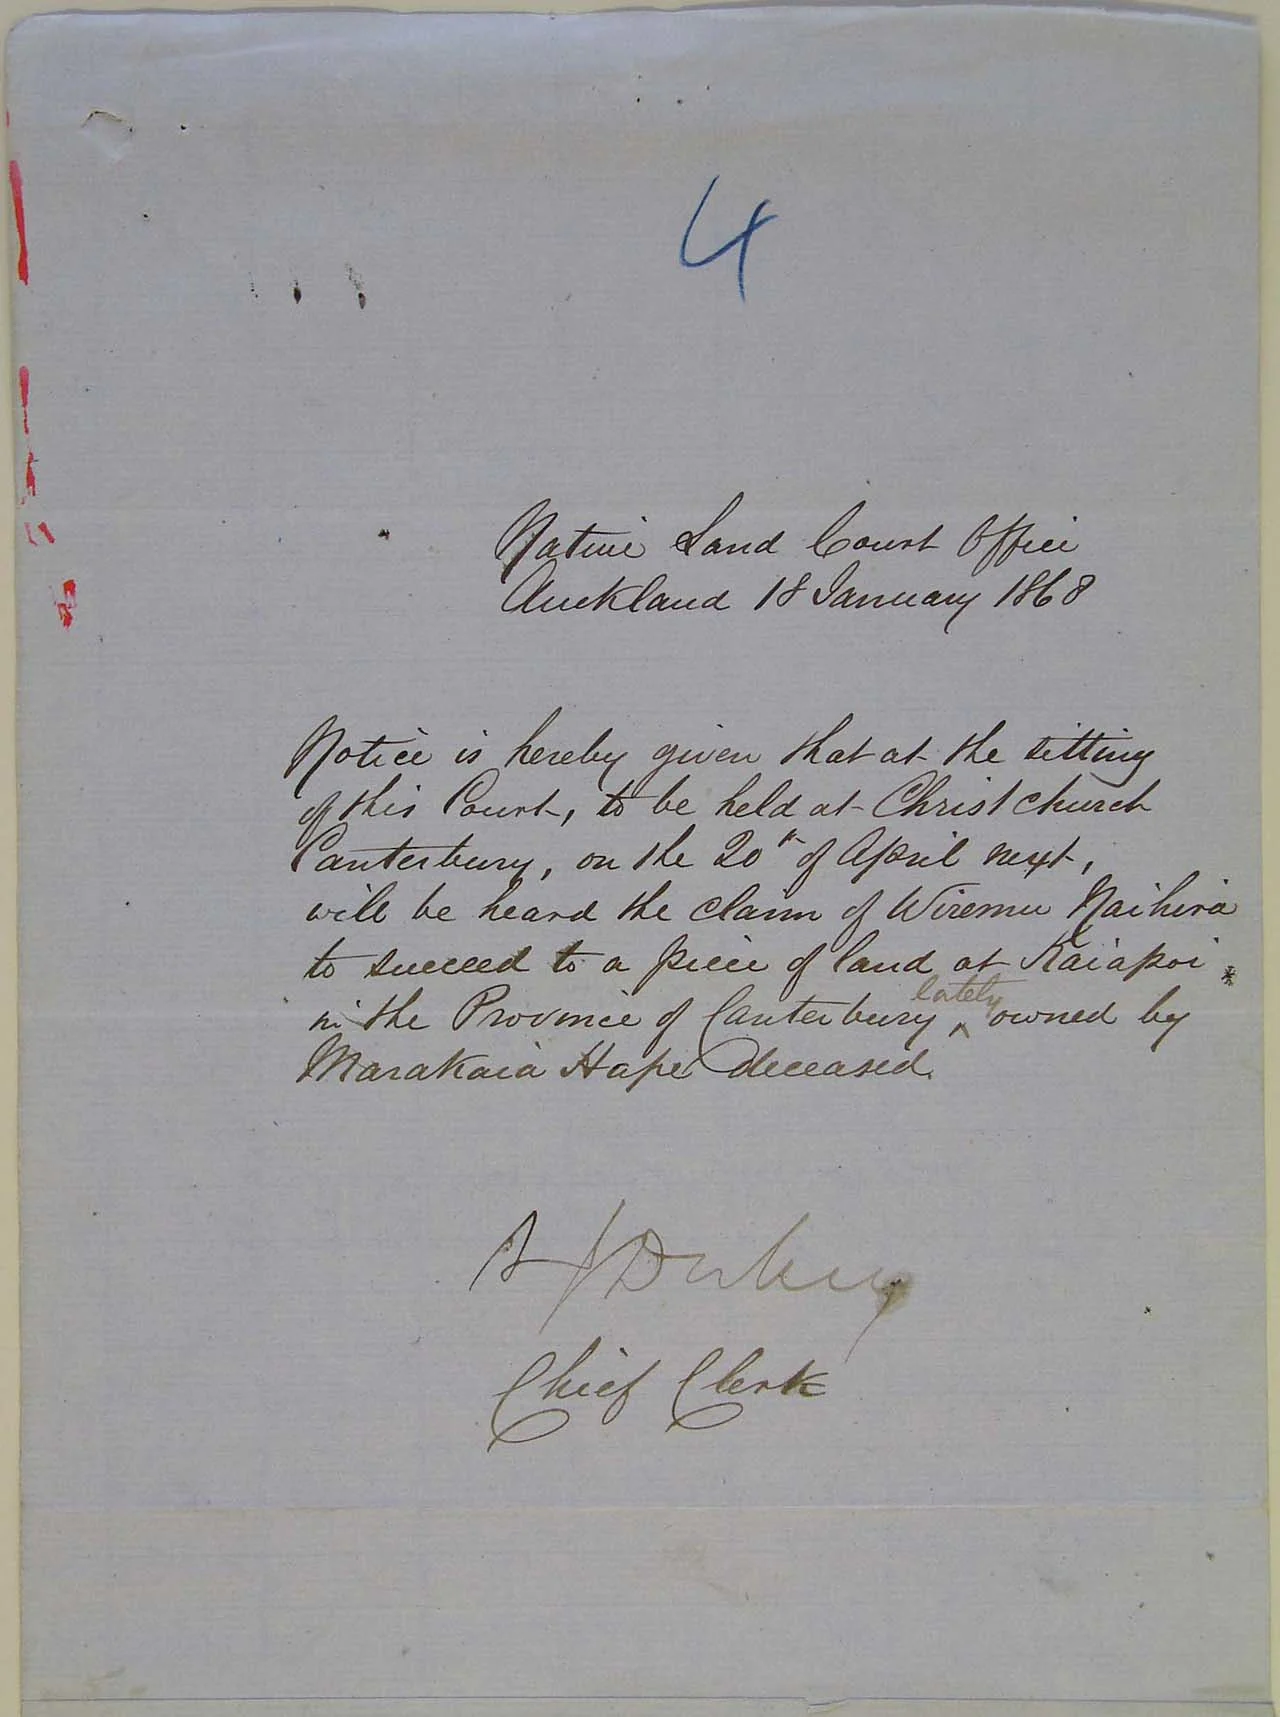 4
Native Land Court Office
Auckland 18 January 1868
Notice is hereby given that at the sitting
of this Court, to be held at Christchurch
Canterbury, on the 20th of April next,
will be heard the claim of Wiremu Naihira
to succeed to a piece of land at Kaiapoi
in the Province of Canterbury, lately owned by
Marakaia Hape deceased.
Chief Clerk